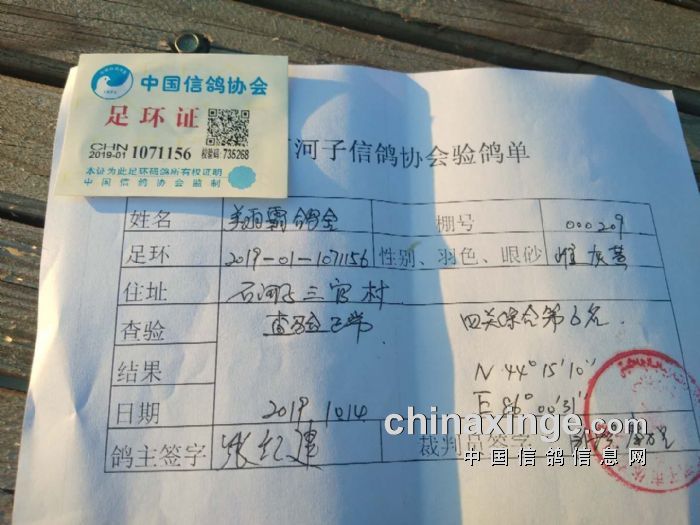 中国信鸽协会
足环证
CHN
2019-01 1071156 校验码: 735268
本证为此足环码鸽所有权证明
中国信鸽协会监制
河子信鸽协会验鸽单
姓名 鸽舍 棚号 000209
足环 2019-01-1071156 性别、羽色、眼砂 雄 灰黄
住址 石河子三宫村
查验 查验正常 四关综合第6名
结果 N 44° 15' 10"
E 86° 00' 31"
日期 2019.10.14
鸽主签字 张红建 裁判员签字
chinaxinge.com
中国信鸽信息网